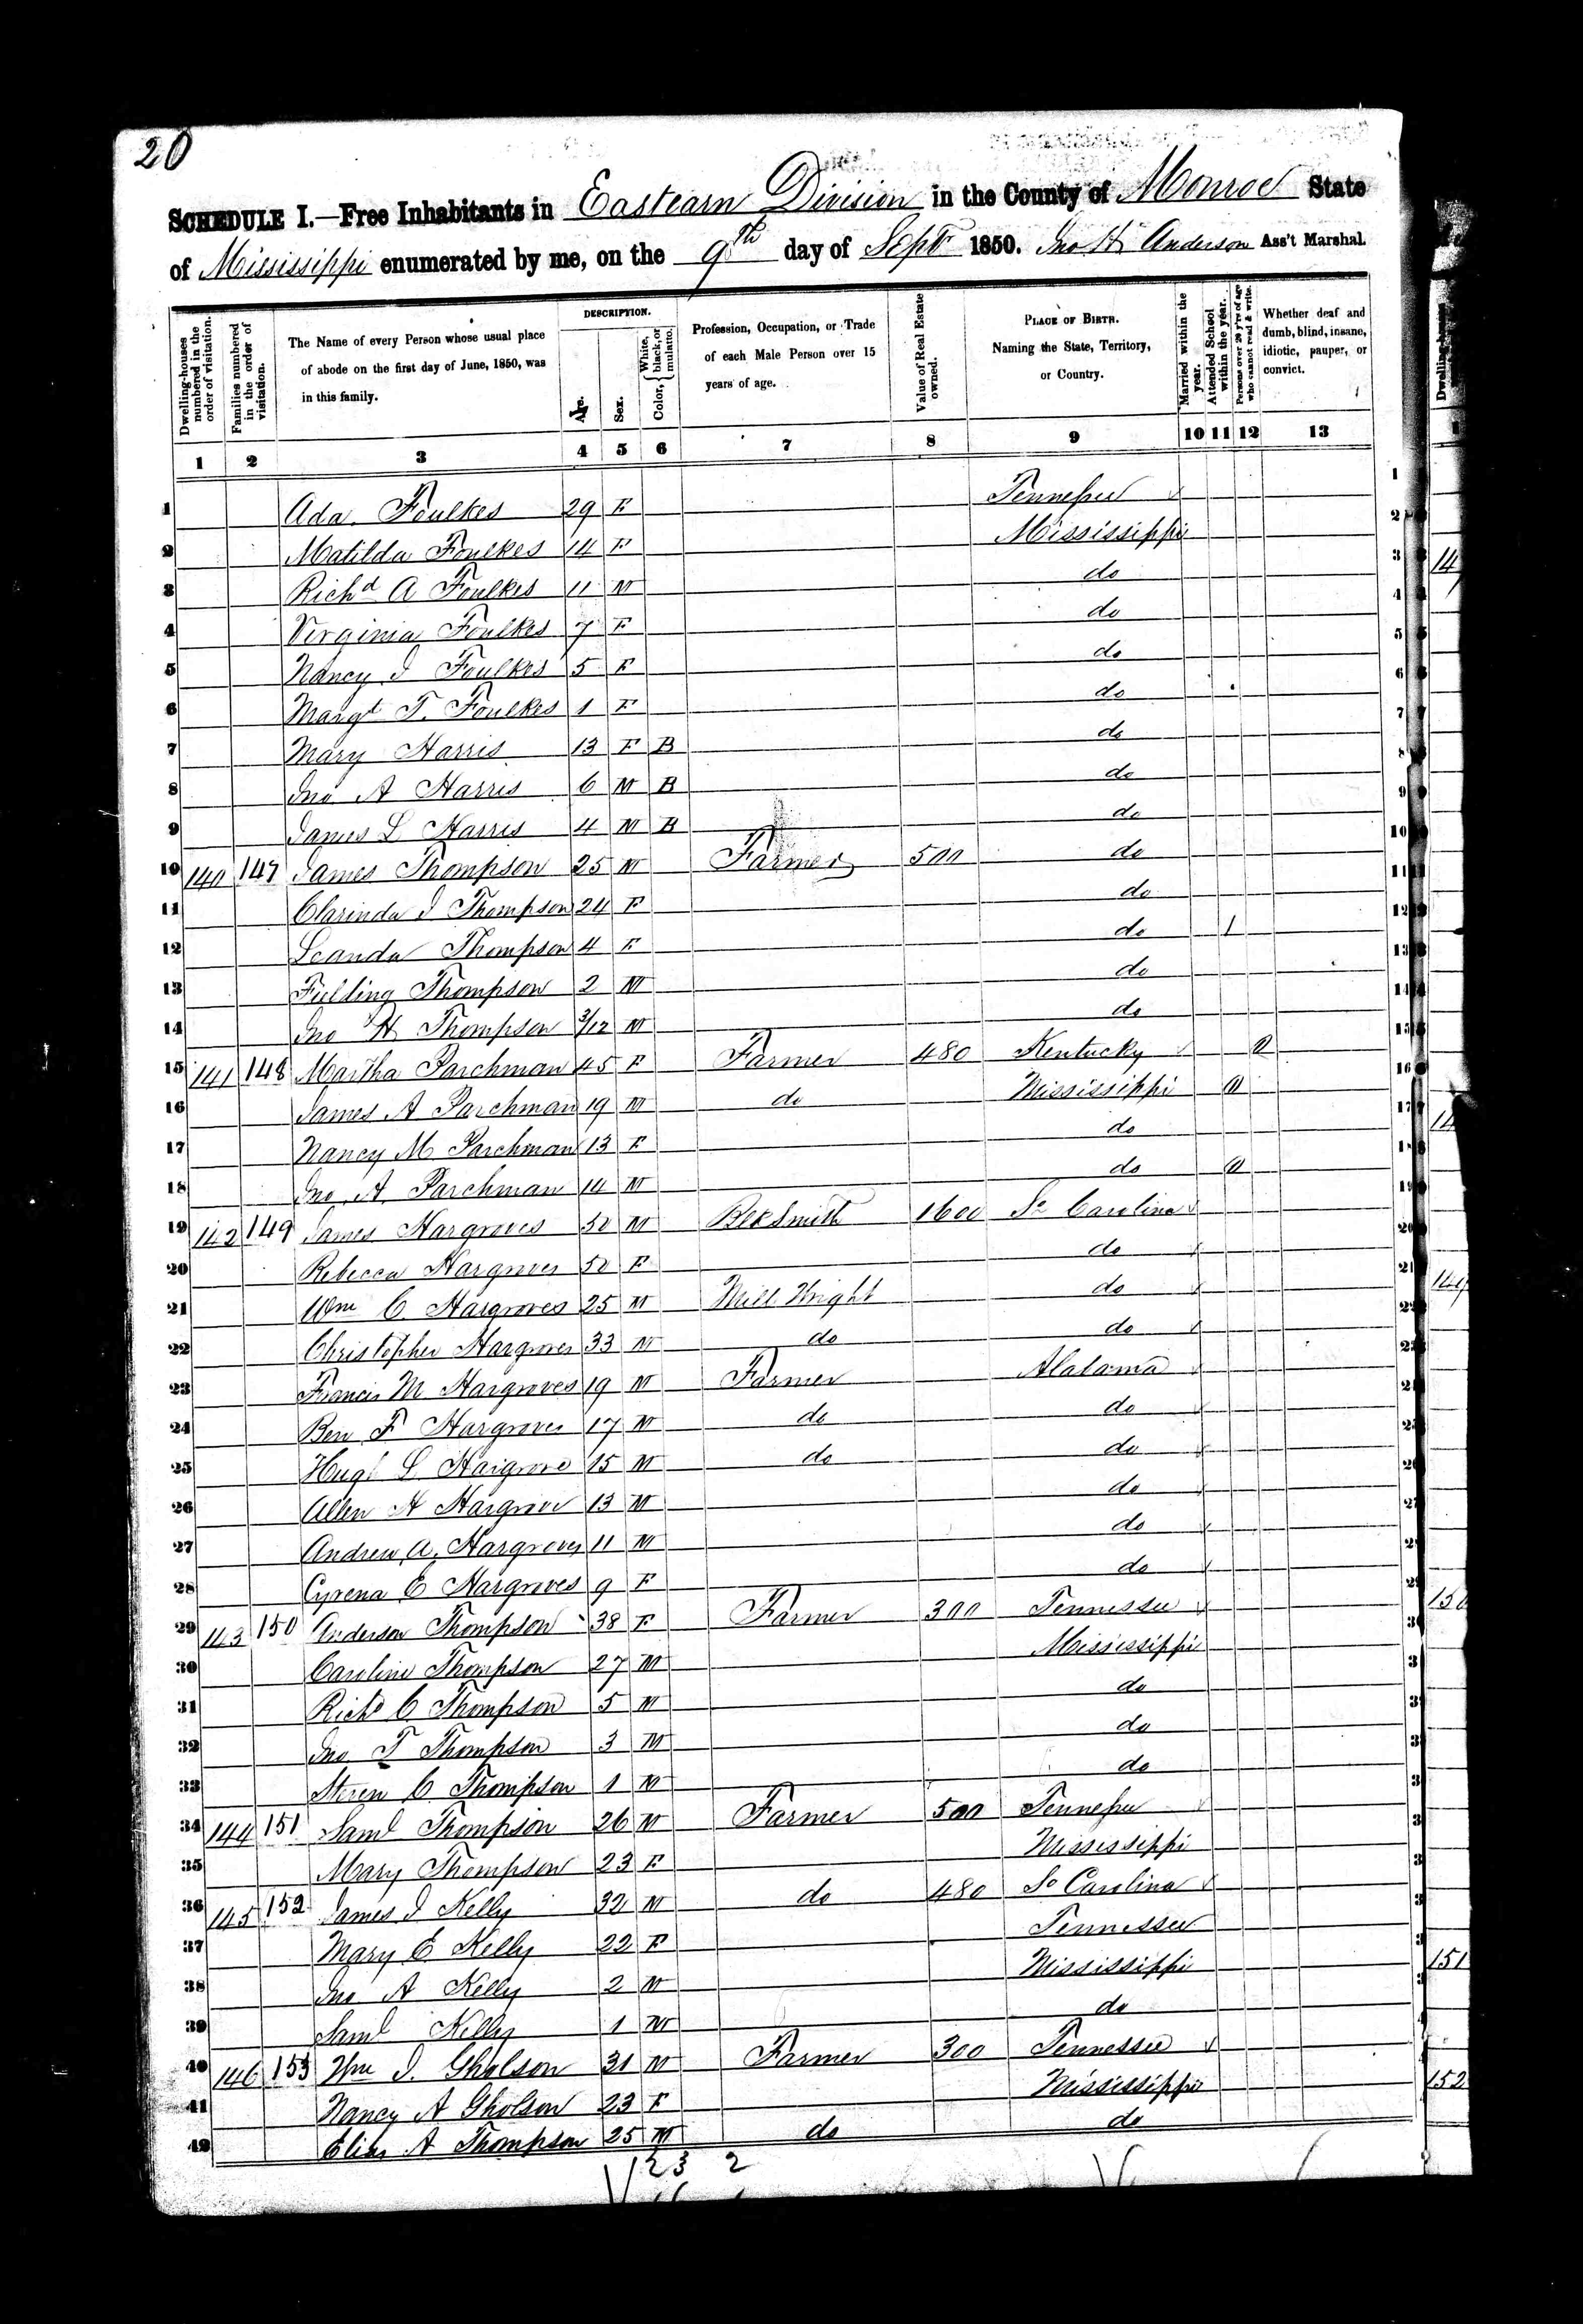 20
SCHEDULE I.—Free Inhabitants in Eastearn Division in the County of Monroe State
of Mississippi enumerated by me, on the 9th day of Sept 1850. Jno H Anderson Ass't Marshal.
Dwelling-houses numbered in the order of visitation.
Families numbered in the order of visitation.
The Name of every Person whose usual place of abode on the first day of June, 1850, was in this family.
DESCRIPTION.
Age.
Sex.
Color, { White, black, or mulatto.
Profession, Occupation, or Trade of each Male Person over 15 years of age.
Value of Real Estate owned.
PLACE OF BIRTH. Naming the State, Territory, or Country.
Married within the year.
Attended School within the year.
Persons over 20 y'rs of age who cannot read & write.
Whether deaf and dumb, blind, insane, idiotic, pauper, or convict.
1 2 3 4 5 6 7 8 9 10 11 12 13
1 Ada Foulkes 29 F Tennessee 1
2 Matilda Foulkes 14 F Mississippi 2
3 Richd A Foulkes 11 M do 3
4 Virginia Foulkes 7 F do 4
5 Nancy J Foulkes 5 F do 5
6 Margt T. Foulkes 1 F do 6
7 Mary Harris 13 F B do 7
8 Jno A Harris 6 M B do 8
9 James L Harris 4 M B do 9
10 140 147 James Thompson 25 M Farmer 500 do 10
11 Clarinda J Thompson 24 F do 11
12 Leanda Thompson 4 F do 1 12
13 Fielding Thompson 2 M do 13
14 Jno H Thompson 3/12 M do 14
15 141 148 Martha Parchman 45 F Farmer 480 Kentucky 15
16 James A Parchman 19 M do Mississippi 16
17 Nancy M Parchman 13 F do 17
18 Jno A Parchman 14 M do 18
19 142 149 James Hargroves 50 M BlkSmith 1600 So Carolina 19
20 Rebecca Hargroves 50 F do 20
21 Wm C Hargroves 25 M Mill Wright do 21
22 Christopher Hargroves 33 M do do
23 Francis M Hargroves 19 M Farmer Alabama
24 Ben F Hargroves 17 M do do
25 Hugh L Hargrove 15 M do do
26 Allen H Hargrove 13 M do
27 Andrew A. Hargroves 11 M do
28 Cyrena E Hargroves 9 F do
29 143 150 Anderson Thompson 38 F Farmer 300 Tennessee
30 Caroline Thompson 27 M Mississippi
31 Richd C Thompson 5 M do
32 Jno T Thompson 3 M do
33 Steven C Thompson 1 M do
34 144 151 Saml Thompson 26 M Farmer 500 Tennessee
35 Mary Thompson 23 F Mississippi
36 145 152 James J Kelly 32 M do 480 So Carolina
37 Mary E Kelly 22 F Tennessee
38 Jno A Kelly 2 M Mississippi
39 Saml Kelly 1 M do
40 146 153 Wm J. Gholson 31 M Farmer 300 Tennessee
41 Nancy A Gholson 23 F Mississippi
42 Elias A Thompson 25 M do do
23 2